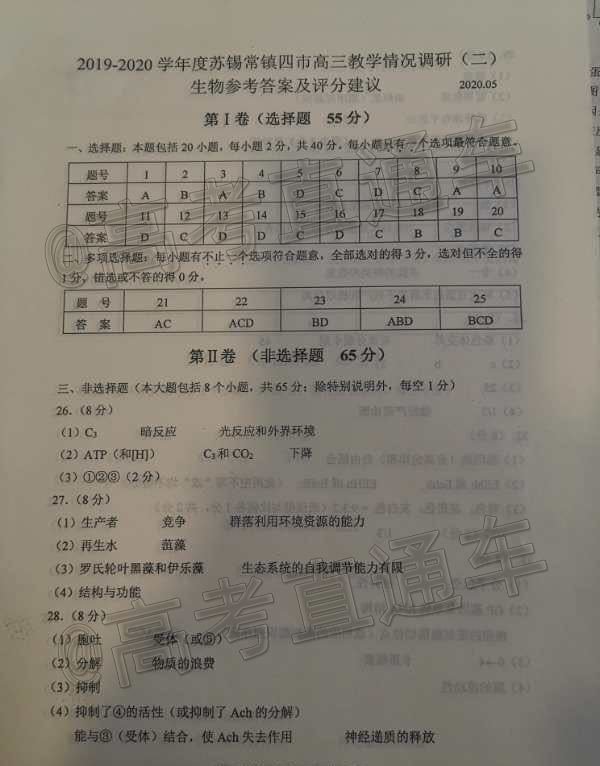 2019-2020 学年度苏锡常镇四市高三教学情况调研（二）
生物参考答案及评分建议 2020.05
第Ⅰ卷（选择题 55 分）
一、选择题：本题包括 20 小题，每小题 2 分，共 40 分。每小题只有一个选项最符合题意。
题号 1 2 3 4 5 6 7 8 9 10
答案 A B A B D C D C A A
题号 11 12 13 14 15 16 17 18 19 20
答案 D C D D C D C B B C
二、多项选择题：每小题有不止一个选项符合题意，全部选对的得 3 分，选对但不全的得
1 分，错选或不答的得 0 分。
题 号 21 22 23 24 25
答 案 AC ACD BD ABD BCD
第Ⅱ卷 （非选择题 65 分）
三、非选择题（本大题包括 8 个小题，共 65 分；除特别说明外，每空 1 分）
26.（8 分）
（1）C₃ 暗反应 光反应和外界环境
（2）ATP（和[H]） C₃和 CO₂ 下降
（3）①②③（2 分）
27.（8 分）
（1）生产者 竞争 群落利用环境资源的能力
（2）再生水 菹藻
（3）罗氏轮叶黑藻和伊乐藻 生态系统的自我调节能力有限
（4）结构与功能
28.（8 分）
（1）胞吐 受体（或⑤）
（2）分解 物质的浪费
（3）抑制
（4）抑制了④的活性（或抑制了 Ach 的分解）
能与⑤（受体）结合，使 Ach 失去作用 神经递质的释放
@高考直通车
@高考直通车